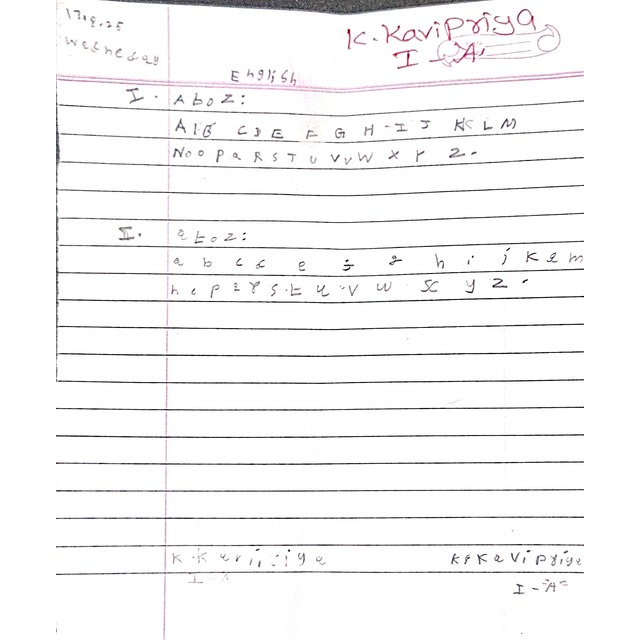 17.9.25
Wednesday
K. Kavipriya
I - "A"
English
I. A to Z:
A B C D E F G H I J K L M
N O P Q R S T U V W X Y Z.
II. a to z:
a b c d e f g h i j k l m
n o p q r s t u v w x y z.
K. Kavipriya
I - "A"